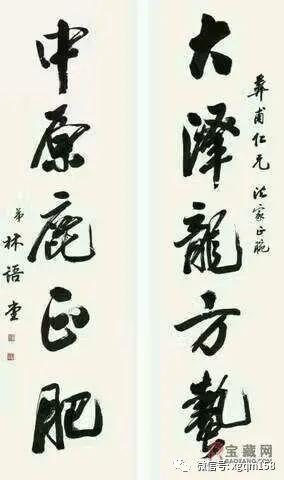 彝甫仁兄 法家正腕
大澤龍方蟄
中原鹿正肥
弟林語堂
宝藏网
微信号: xgqm158